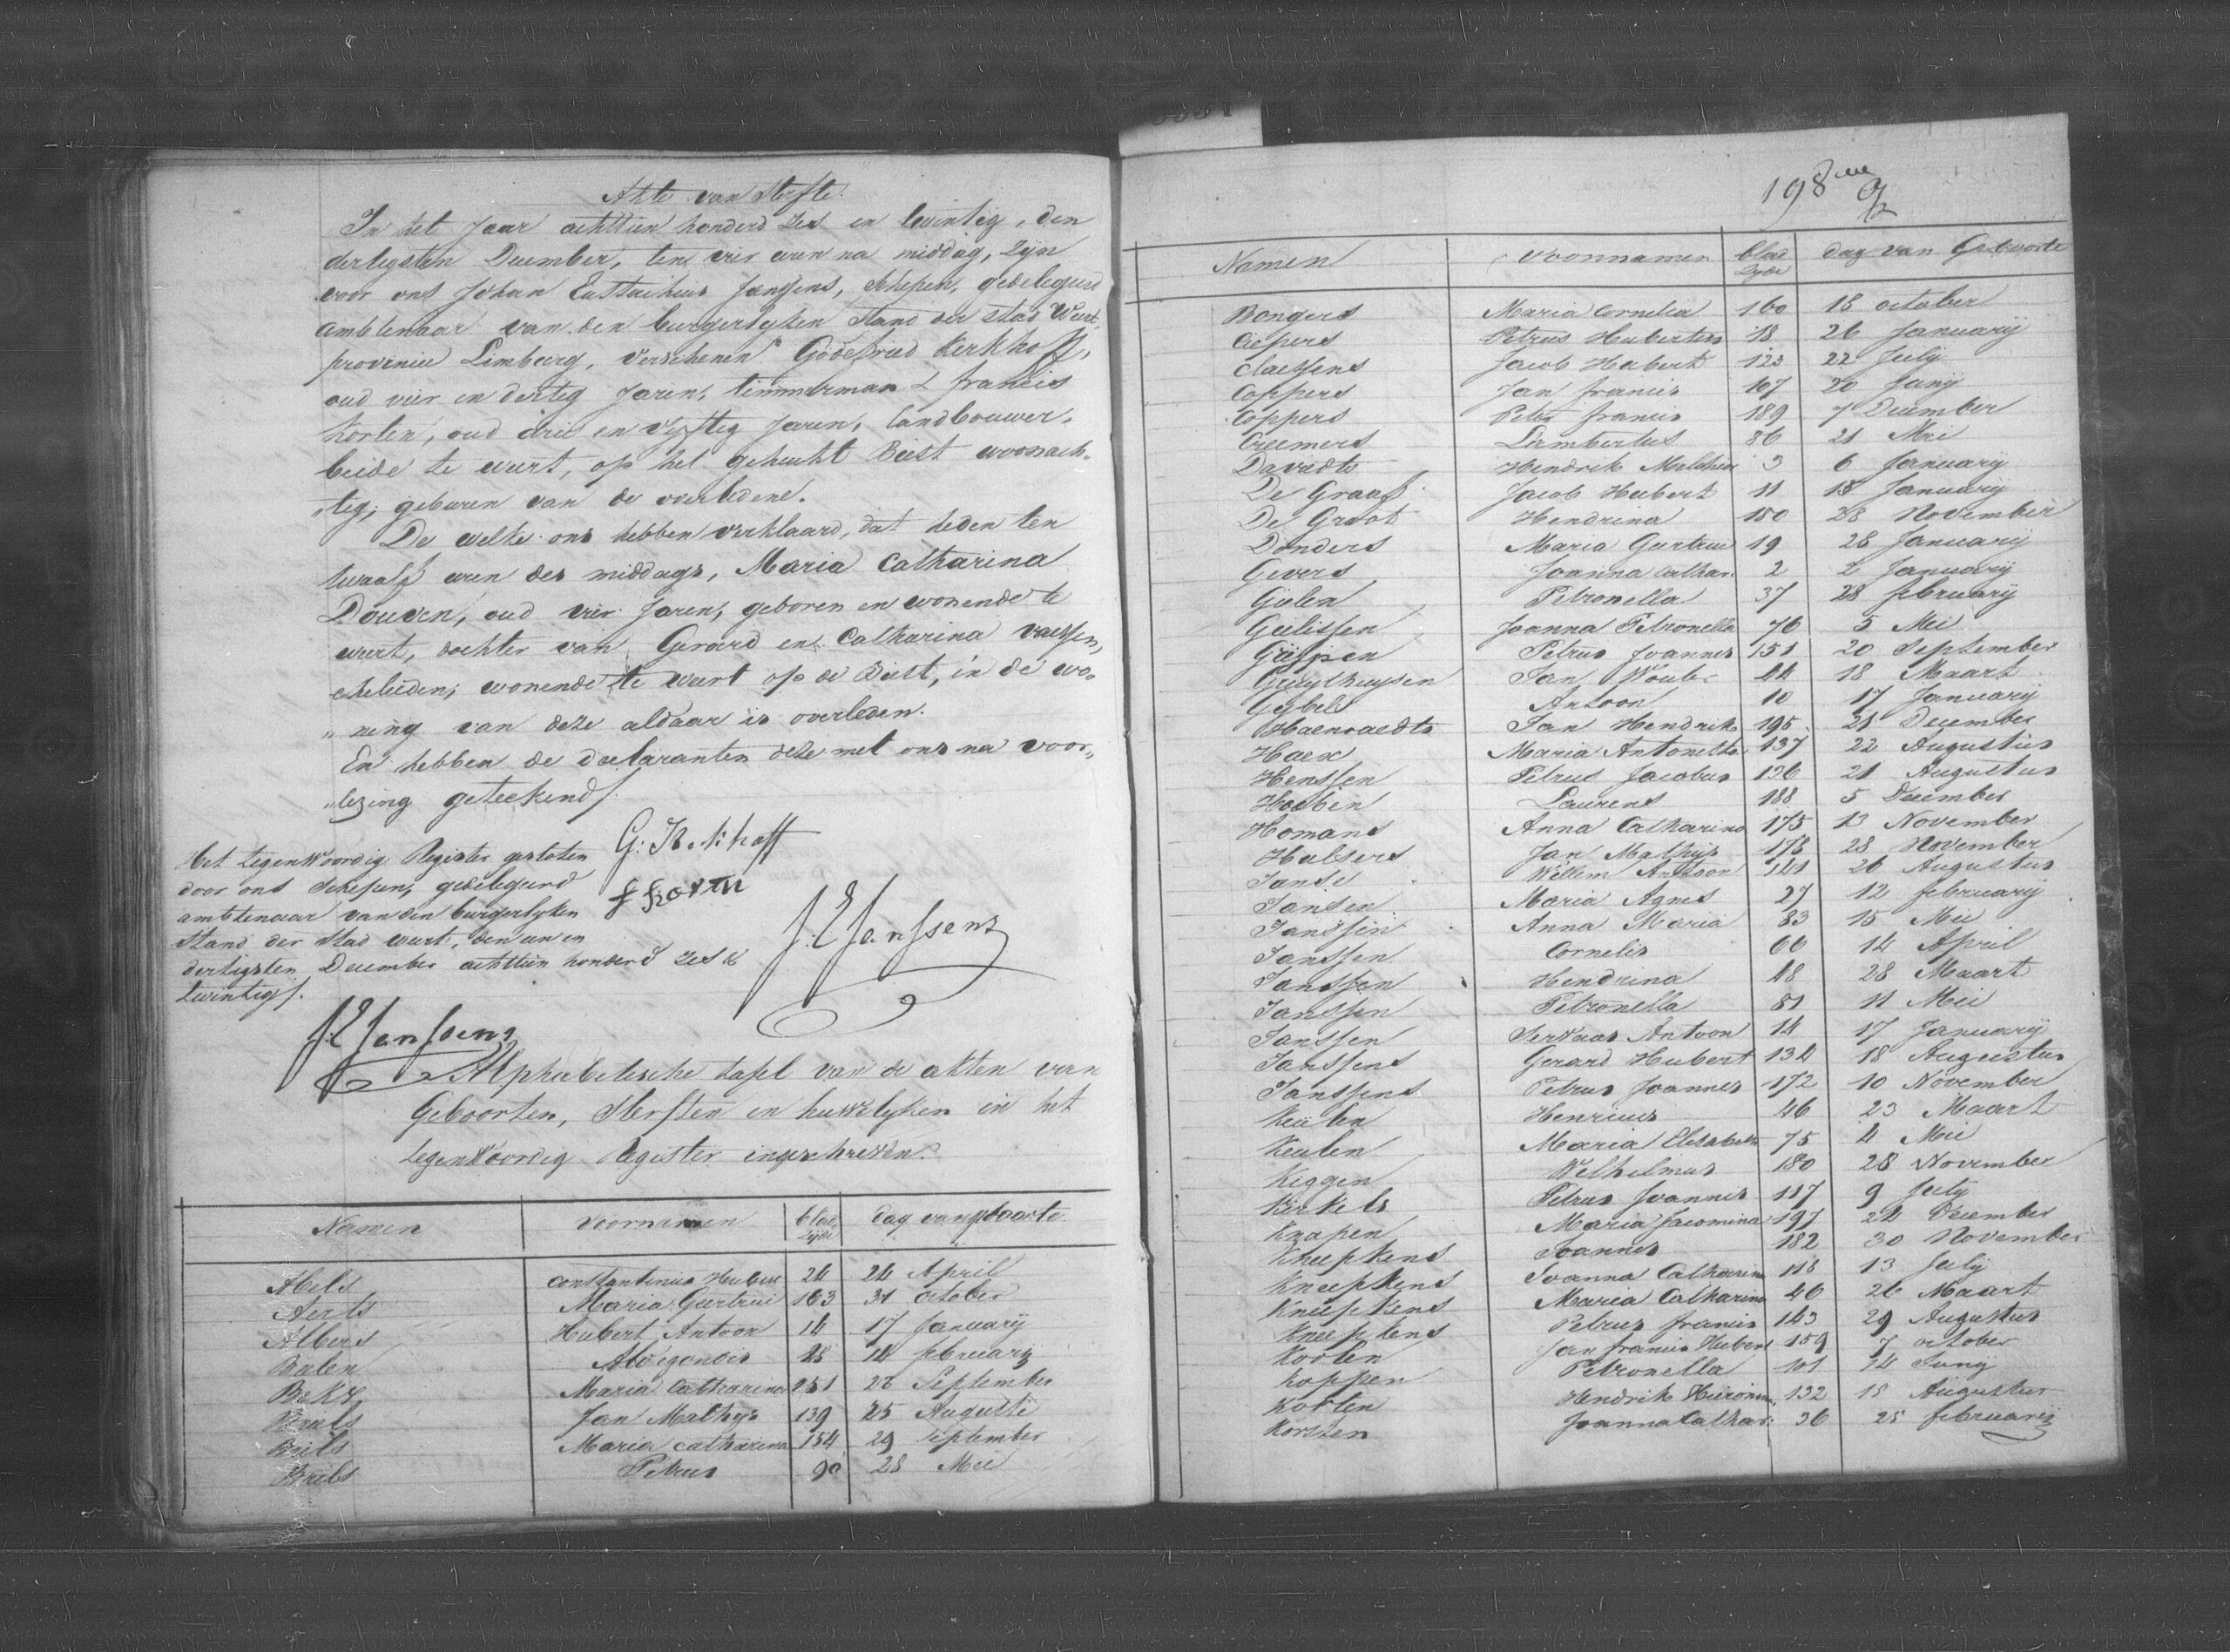 Akte van Sterfte.
In het Jaar achttien honderd zes en twintig, den
dertigsten December, ten vier uren na middag, zijn
voor ons Johan Eustachius Janssens, schepen, gedelegueerd
ambtenaar van den burgerlyken Stand der stad Weert,
provincie Limburg, verschenen Godefried Kerkhoff,
oud vier en dertig Jaren, timmerman & francis
Korten, oud drie en vyftig Jaren, landbouwer,
beide te weert, op het gehucht Biest woonach-
"tig, geburen van de overledene.
De welke ons hebben verklaard, dat heden ten
twaalf uren des middags, Maria Catharina
Douven, oud vier Jaren, geboren en wonende te
weert, dochter van Gerard en Catharina vaessen,
echelieden, wonende te weert op de Biest, in de wo-
"ning van deze aldaar is overleden.
En hebben de declaranten deze met ons na voor-
"lezing geteekend/.
G: Kerkhoff
f korten
J.E Janssens
Het tegenwoordig Register gesloten
door ons schepen, gedelegueerd
ambtenaar van den burgerlyken
Stand der Stad weert, den een en
dertigsten December achttien honderd zes &
twintig/.
J.E Janssens
Alphabetische tafel van de akten van
Geboorten, Sterften en huwelyken in het
tegenwoordig Register ingeschreven.
Namen Voornamen blad zyde dag van geboorte
Abels Constantinus Hubert 24 24 April
Aerts Maria Geertrui 163 31 October
Albers Hubert Antoon 14 17 January
Balen Aldegondis 28 14 february
Bekx Maria Catharina 151 26 September
Brals Jan Mathys 139 25 Auguste
Briels Maria catharina 154 29 September
Bruls Petrus 90 28 Mei
198ste
Namen Voornamen blad zyde dag van Geboorte
Bongers Maria Cornelia 160 18 october
Ciepers Petrus Hubertus 18 26 January
Claessens Jacob Hubert 123 22 July
Coppers Jan francis 107 20 Juny
Coppers Petrus francis 189 7 December
Creemers Lambertus 86 21 Mei
Davidts Hendrik Melchior 3 6 January
De Graaf Jacob Hubert 11 15 January
De Groot Hendrina 180 28 November
Donders Maria Geertrui 19 28 January
Gevers Joanna Cathar. 2 2 January
Gielen Petronella 37 28 february
Gielissen Joanna Petronella 76 5 Mei
Gijsen Petrus Joannes 151 20 September
Gruythuysen Jan Wouter 44 18 Maart
Gybels Antoon 10 17 January
Haenraedts Jan Hendrik 195 21 December
Haex Maria Antonetta 137 22 Augustus
Henssen Petrus Jacobus 136 21 Augustus
Hoeben Laurens 188 5 December
Homans Anna Catharina 175 13 November
Hulsers Jan Mathijs 178 28 November
Janse Willem Antoon 141 26 Augustus
Jansen Maria Agnes 27 12 february
Janssen Anna Maria 83 15 Mei
Janssen Cornelis 66 14 April
Janssen Hendrina 48 28 Maart
Janssen Petronella 81 11 Mei
Janssen Servaas Antoon 14 17 January
Janssens Gerard Hubert 134 18 Augustus
Janssens Petrus Joannes 172 10 November
Keulen Henricus 46 23 Maart
Keulen Maria Elisabeth 75 4 Mei
Kiggen Wilhelmus 180 28 November
Kirkels Petrus Joannes 117 9 July
Knapen Maria Jacomina 197 24 December
Kneepkens Joannes 182 30 November
Kneepkens Joanna Catharina 118 13 July
Kneepkens Maria Catharina 46 26 Maart
Kneepkens Petrus francis 143 29 Augustus
Koolen Jan francis Hubert 159 7 october
Koppen Petronella 101 14 Juny
Korten Hendrik Hieronim. 132 18 Augustus
Korsten Joanna Cathar. 36 25 february